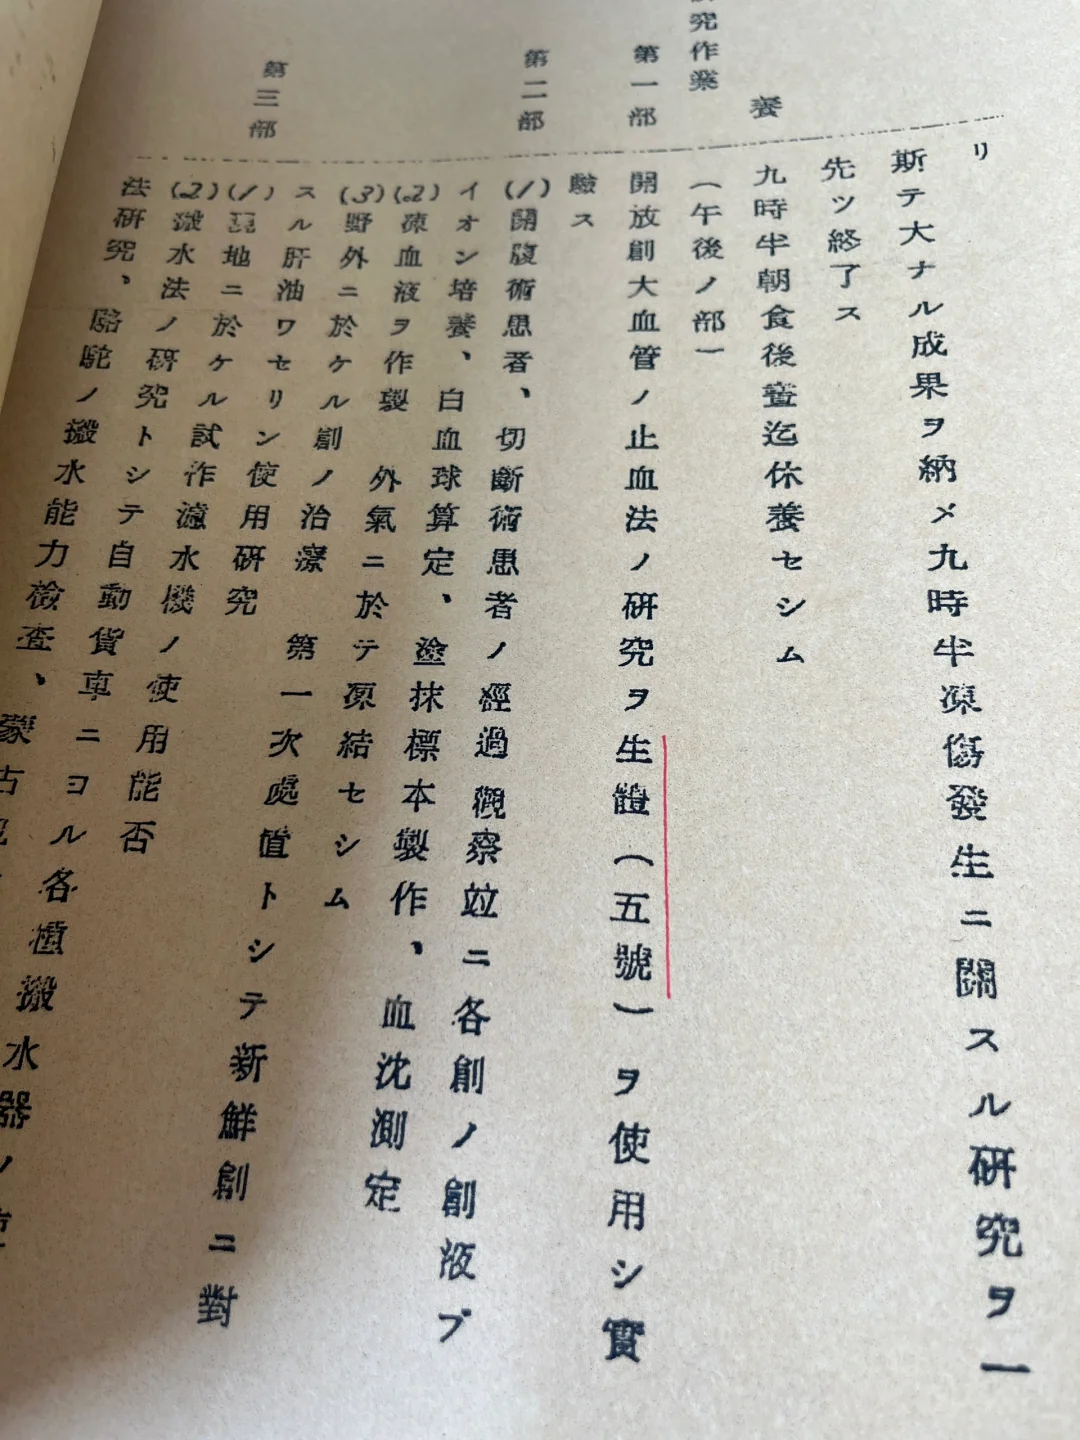 リ
斯テ大ナル成果ヲ納メ九時半凍傷發生ニ關スル研究ヲ一
先ツ終了ス
養
九時半朝食後晝迄休養セシム
究作業
(午後ノ部)
第一部
開放創大血管ノ止血法ノ研究ヲ生體(五號)ヲ使用シ實
驗ス
第二部
(1)開腹術患者、切斷術患者ノ經過觀察竝ニ各創ノ創液ブ
イオン培養、白血球算定、塗抹標本製作、血沈測定
(2)凍血液ヲ作製 外氣ニ於テ凍結セシム
(3)野外ニ於ケル創ノ治療 第一次處置トシテ新鮮創ニ對
スル肝油ワセリン使用研究
第三部
(1)露地ニ於ケル試作濾水機ノ使用能否
(2)搬水法ノ研究トシテ自動貨車ニヨル各種搬水器ノ
法研究、駱駝ノ搬水能力檢査、蒙古